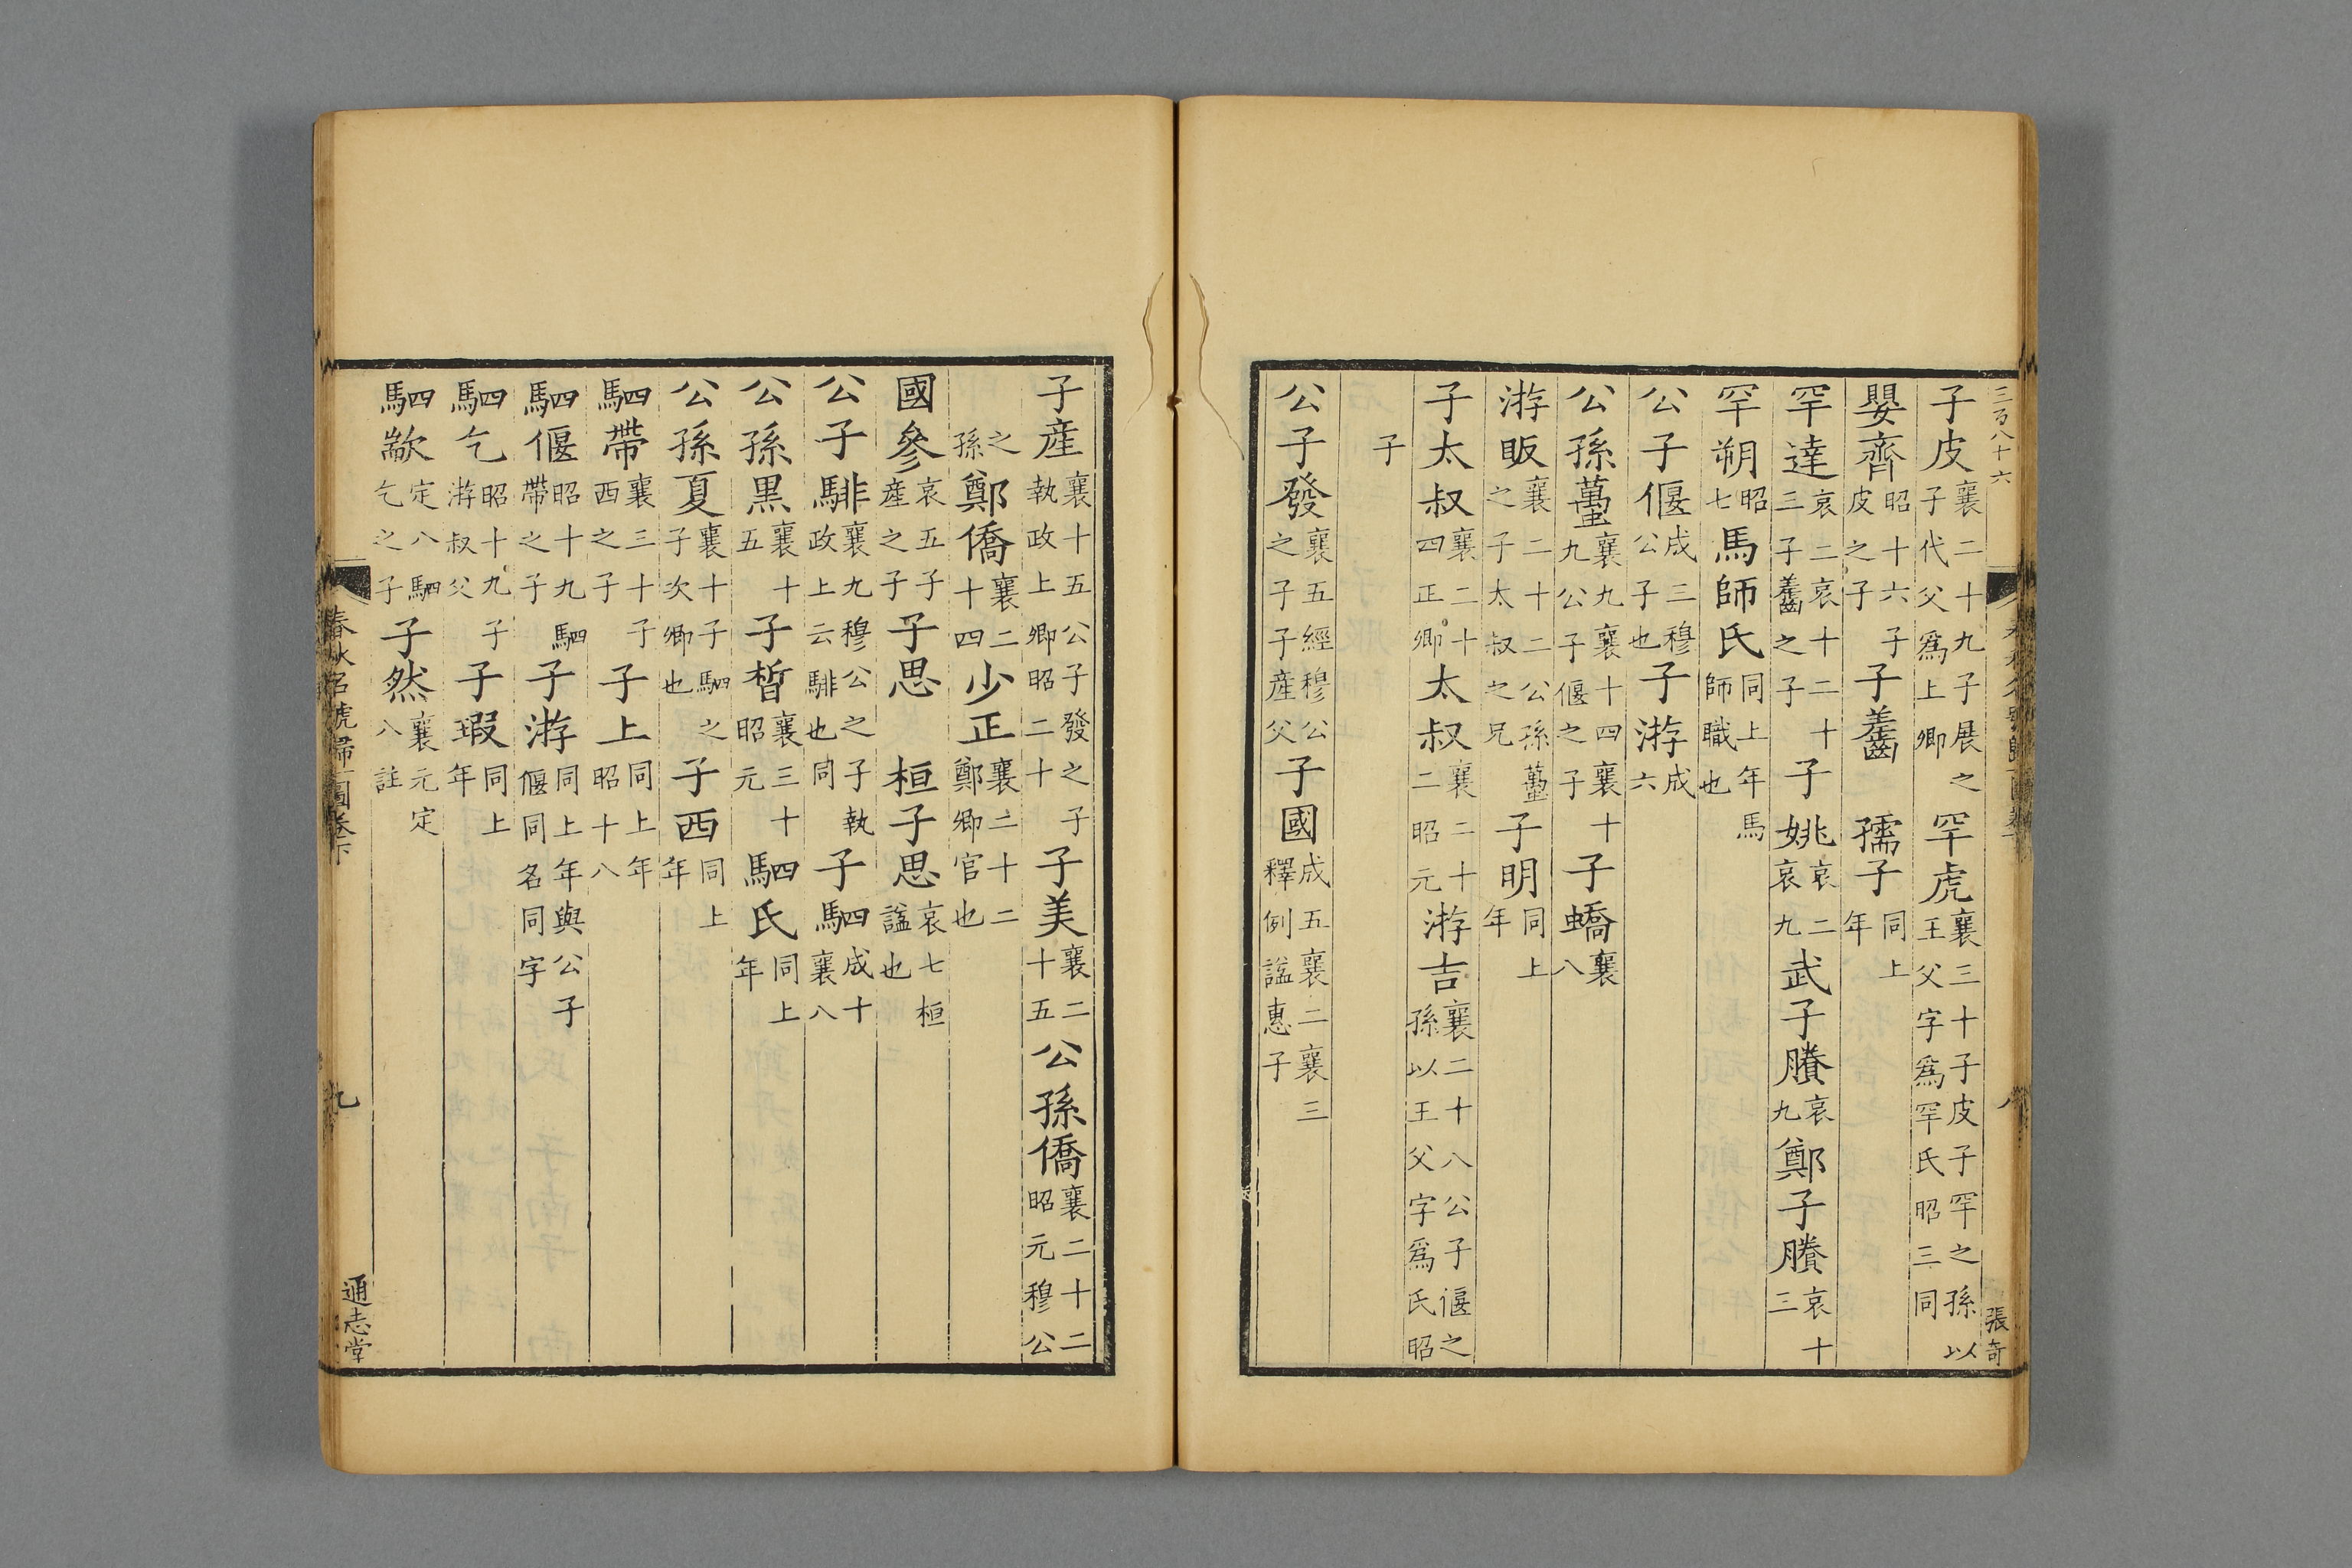 三百八十六
張奇
子皮襄二十九子展之子代父爲上卿罕虎襄三十子皮子罕之孫以王父字爲罕氏昭三同
嬰齊昭十六子皮之子子齹孺子同上年
罕達哀二哀十二十二子齹之子子姚哀二哀九武子賸哀九鄭子賸哀十三
罕朔昭七馬師氏同上年馬師職也
公子偃成三穆公子也子游成六
公孫蠆襄九襄十四襄十九公子偃之子子蟜襄八
游眅襄二十二公孫蠆之子太叔之兄子明同上年
子太叔襄二十四正卿太叔襄二十二昭元游吉襄二十八公子偃之孫以王父字爲氏昭
子
公子發襄五經穆公之子子產父子國成五襄二襄三釋例諡惠子
子產襄十五公子發之子執政上卿昭二十子美襄二十五公孫僑襄二十二昭元穆公
之孫鄭僑襄二十四少正襄二十二鄭卿官也
國參哀五子產之子子思桓子思哀七桓諡也
公子騑襄九穆公之子執政上云騑也同子駟成十襄八
公孫黑襄十五子晳襄三十昭元駟氏同上年
公孫夏襄十子駟之子次卿也子西同上年
駟帶襄三十子西之子子上同上年昭十八
駟偃昭十九駟帶之子子游同上年與公子偃同名同字
駟乞昭十九子游叔父子瑕同上年
駟歂定八駟乞之子子然襄元定八註
春秋名號歸一圖卷下
九
通志堂